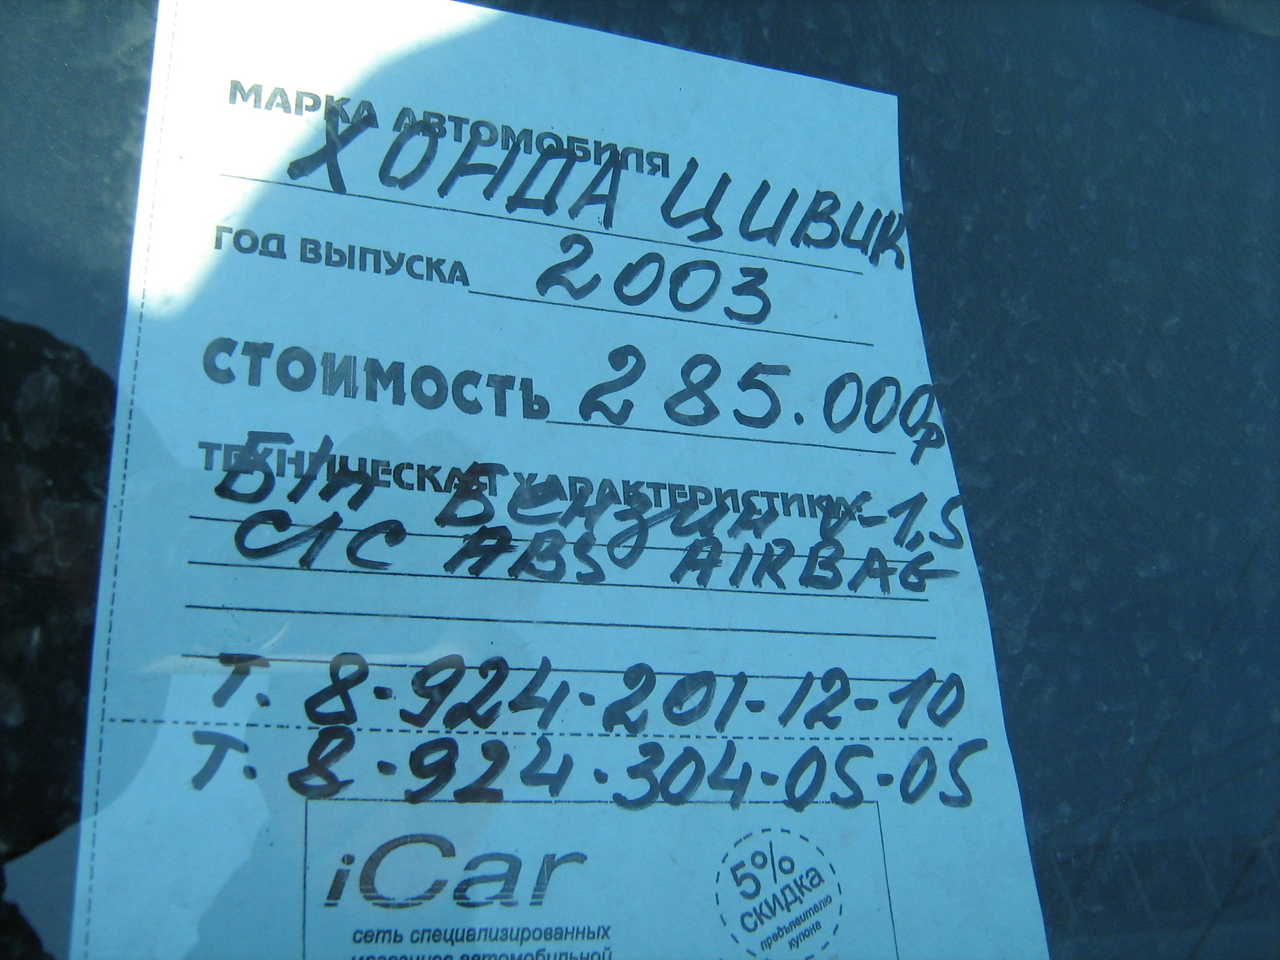 МАРКА АВТОМОБИЛЯ
ХОНДА ЦИВИК
ГОД ВЫПУСКА 2003
СТОИМОСТЬ 285.000р
ТЕХНИЧЕСКАЯ ХАРАКТЕРИСТИКА:
Б/П БЕНЗИН V-1,5
С/С ABS AIRBAG
Т. 8-924-201-12-10
Т. 8-924-304-05-05
iCar
5%
СКИДКА
предъявителю
купона
сеть специализированных
магазинов автомобильной